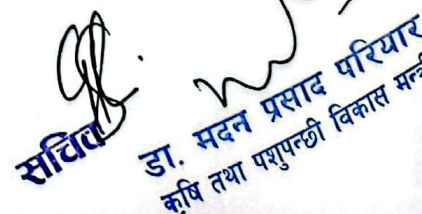 सचिव
डा. मदन प्रसाद परियार
कृषि तथा पशुपन्छी विकास